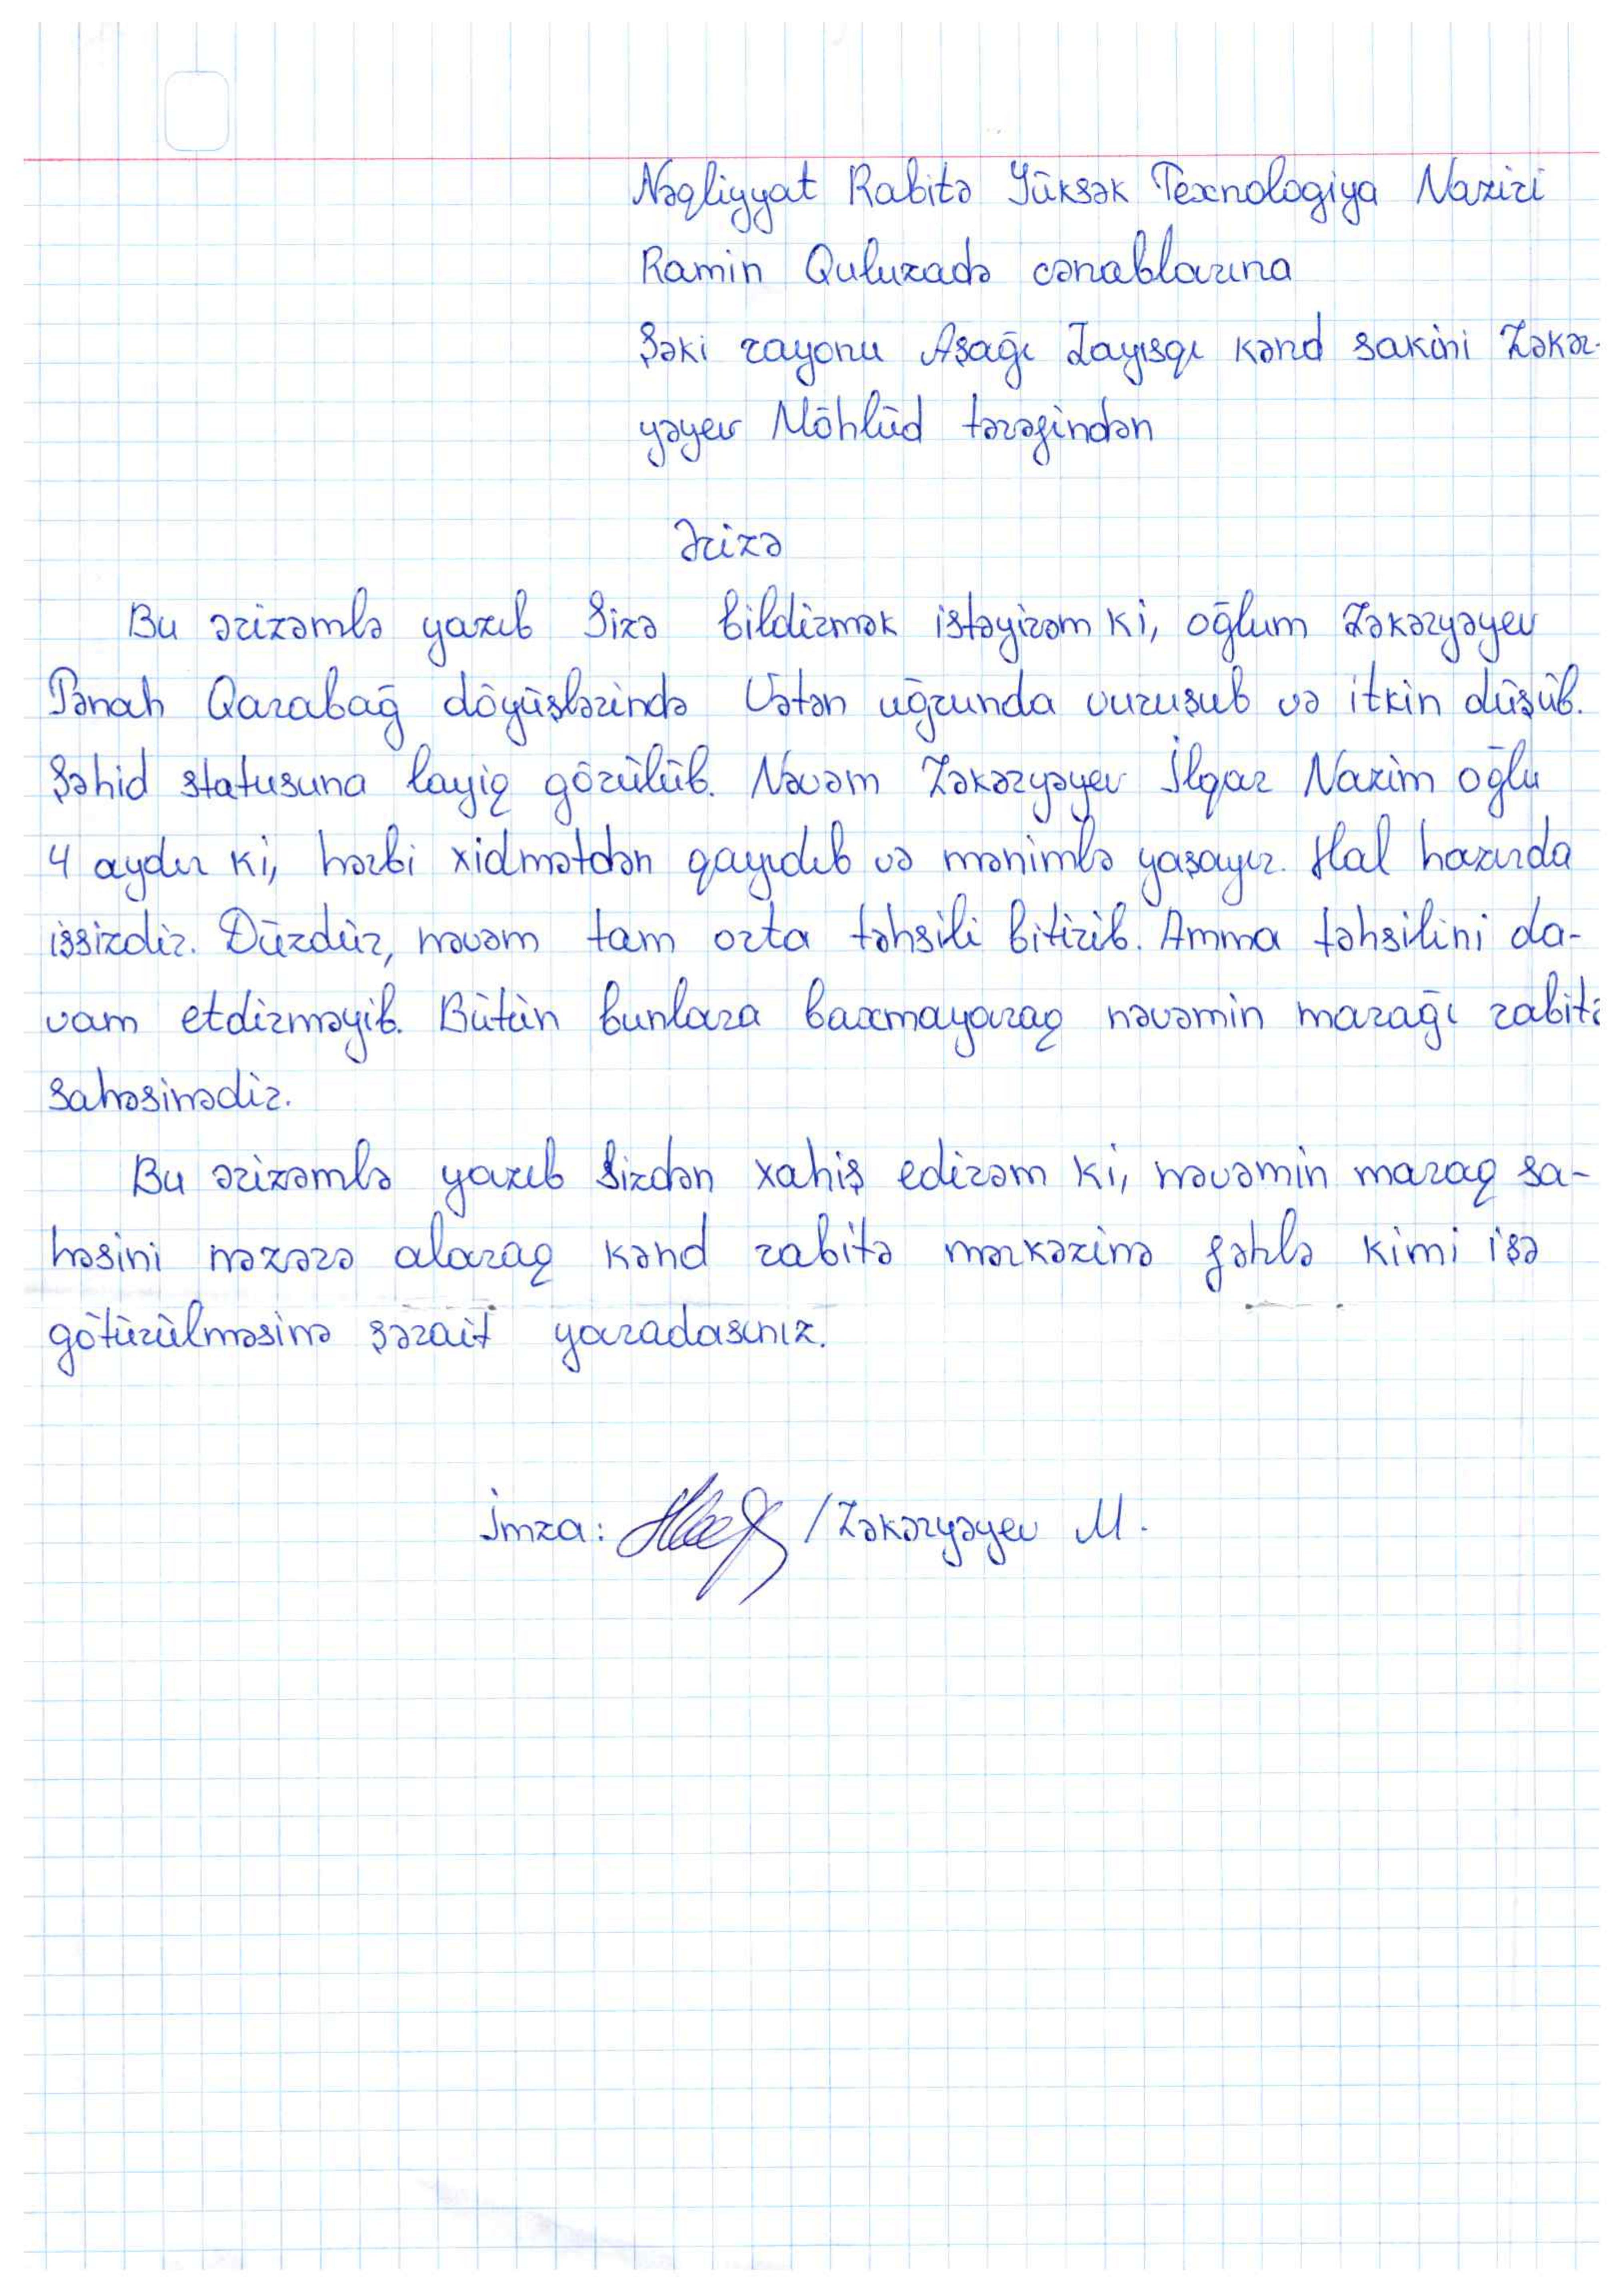 Nəqliyyat Rabitə Yüksək Texnologiya Naziri
Ramin Quluzadə cənablarına
Şəki rayonu Aşağı Layısqı kənd sakini Zəkər-
yəyev Möhlüd tərəfindən
Ərizə
Bu ərizəmlə yazıb Sizə bildirmək istəyirəm ki, oğlum Zəkəryəyev
Pənah Qarabağ döyüşlərində Vətən uğrunda vuruşub və itkin düşüb.
Şəhid statusuna layiq görülüb. Nəvəm Zəkəryəyev İlqar Nazim oğlu
4 aydır ki, hərbi xidmətdən qayıdıb və mənimlə yaşayır. Hal hazırda
işsizdir. Düzdür, nəvəm tam orta təhsili bitirib. Amma təhsilini da-
vam etdirməyib. Bütün bunlara baxmayaraq nəvəmin marağı rabitə
sahəsinədir.
Bu ərizəmlə yazıb Sizdən xahiş edirəm ki, nəvəmin maraq sa-
həsini nəzərə alaraq kənd rabitə mərkəzinə fəhlə kimi işə
götürülməsinə şərait yaradasınız.
İmza: /Zəkəryəyev M.